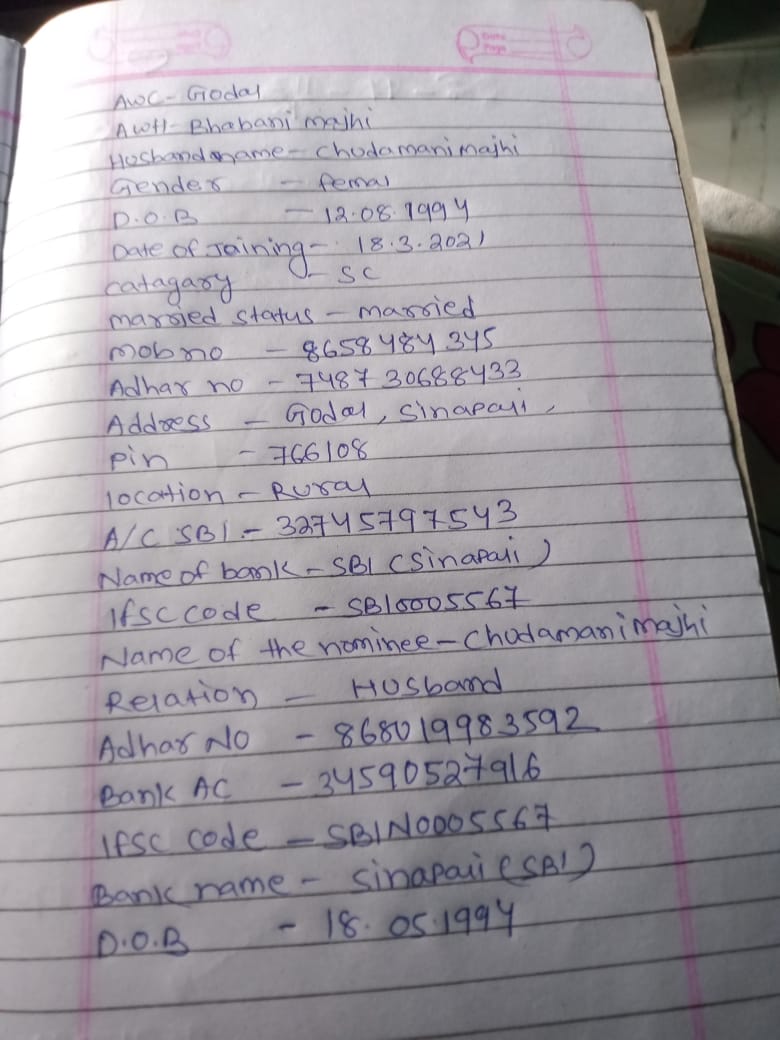 Date
Page
AWC - Godal
AWH - Bhabani majhi
Husband name - chudamani majhi
Gender - femal
D.O.B - 12.08.1994
Date of Joining - 18.3.2021
catagary - SC
married status - married
mob no - 8658484345
Adhar no - 7487 30688433
Address - Godal, Sinapali,
pin - 766108
location - Rural
A/C SBI - 32745797543
Name of bank - SBI (Sinapali)
Ifsc code - SBI0005567
Name of the nominee - Chudamani majhi
Relation - Husband
Adhar No - 868019983592
Bank AC - 34590527916
IFSC code - SBIN0005567
Bank name - Sinapali (SBI)
D.O.B - 18.05.1994